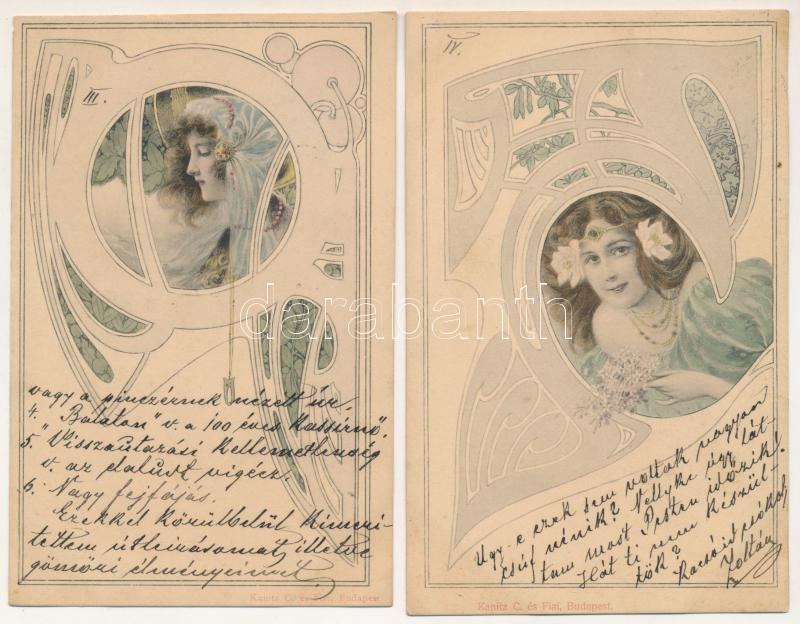 III.
vagy a pinczérnek nézett úr.
4. "Balaton" v. a 100 éves kassírnő.
5. Visszautazási kellemetlenség
v. az dalust vigécz.
6. Nagy fejfájás.
Ezekkel körülbelül kimerí-
tettem útleírásomat, illetve
gömöri élményeimet.
Kanitz C. és Fiai, Budapest
IV.
Ugy-e ezek sem voltak nagyon
nénik? úgy lát-
tam most Pesten időzik!
Hát ti nem készül-
tök?
csókol
Zoltán
Kanitz C. és Fiai, Budapest.
darabanth